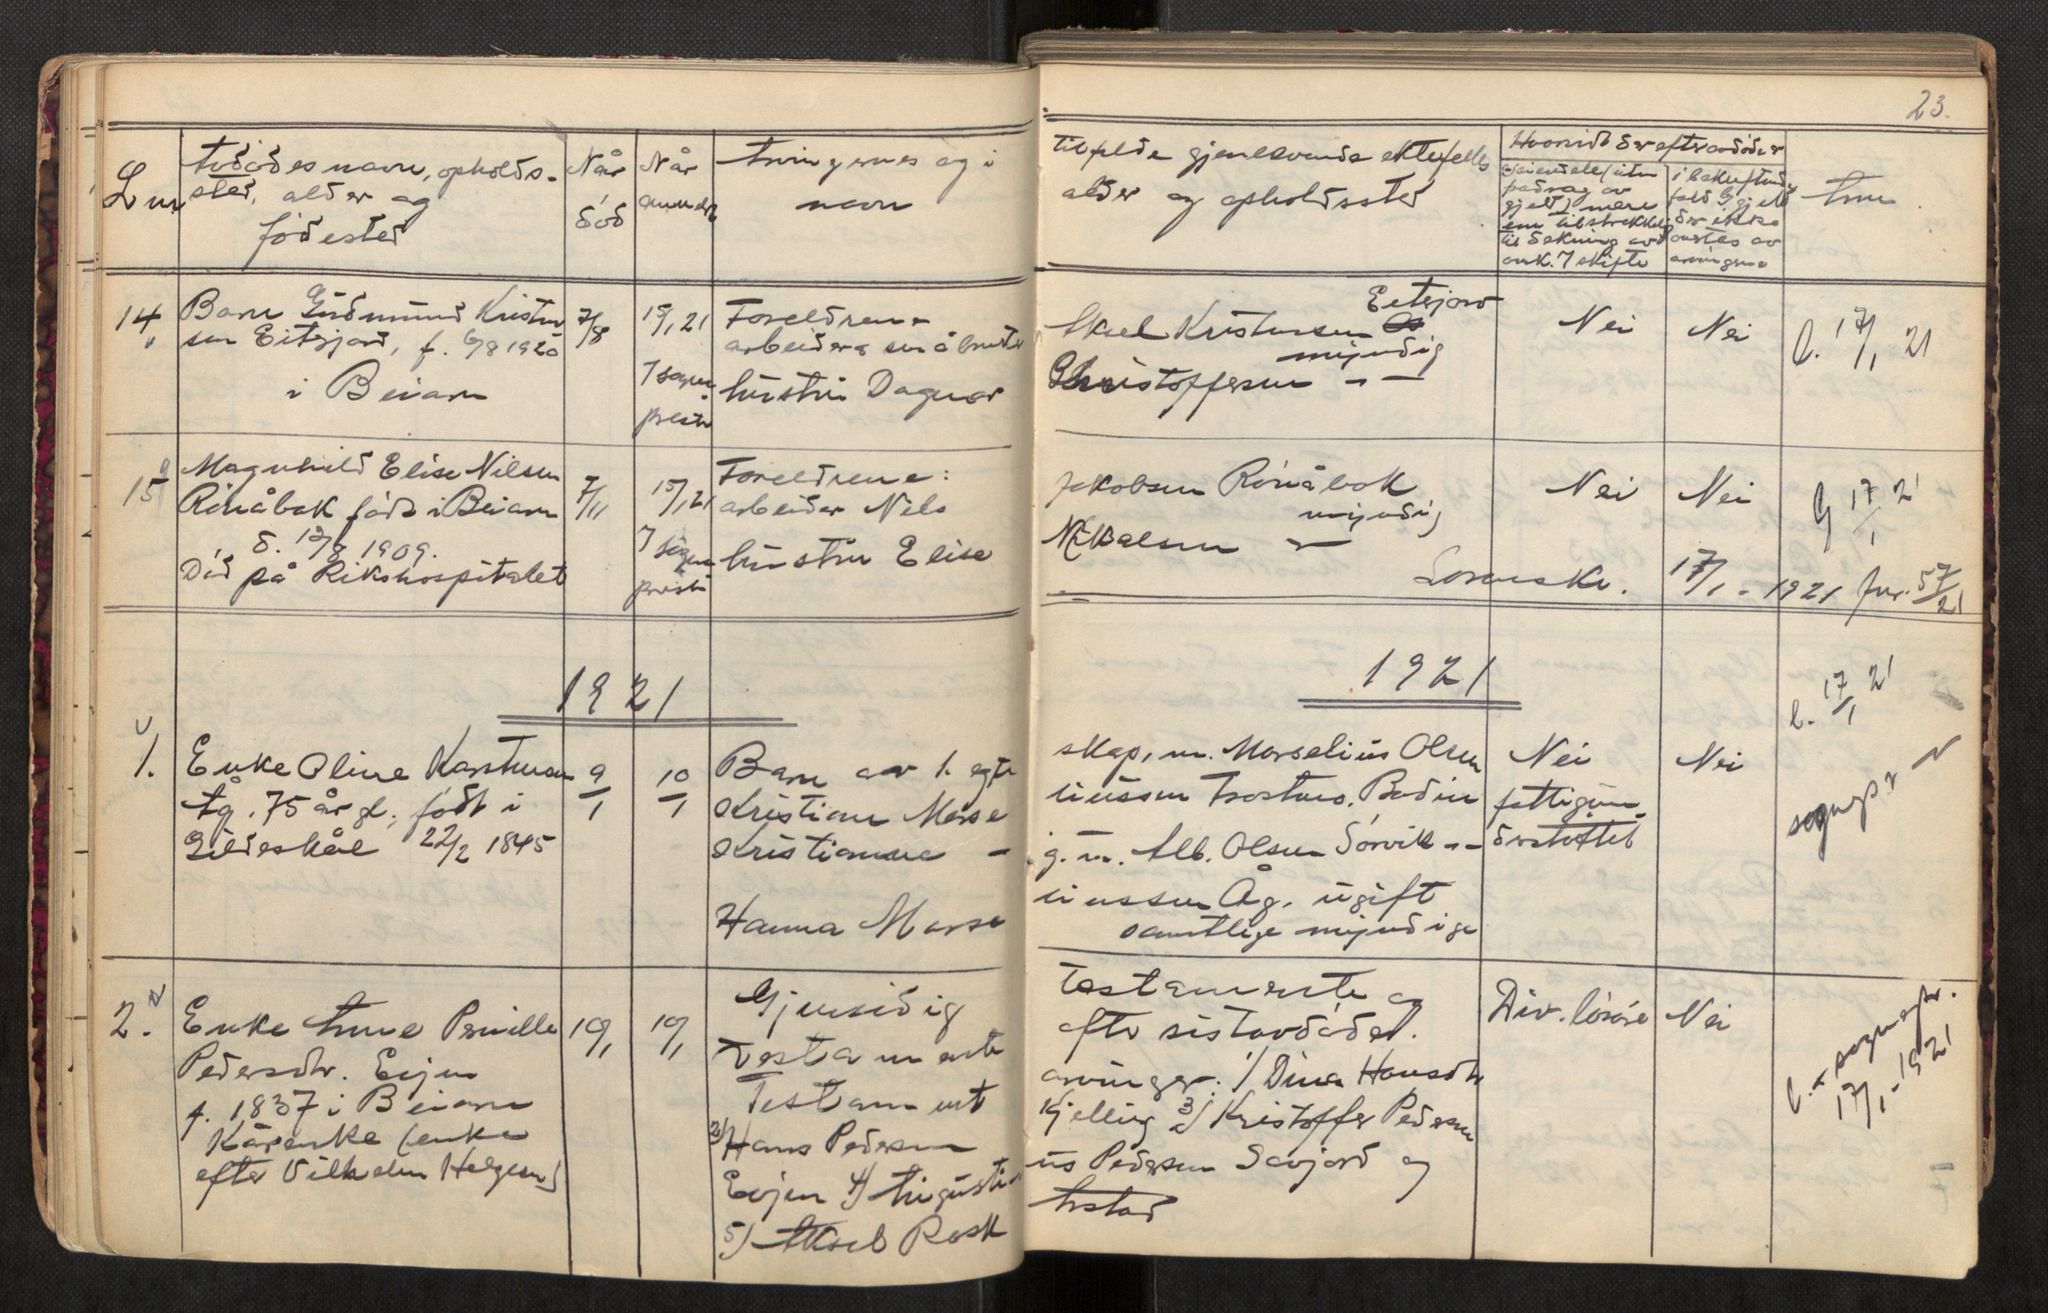 23.
Lnr
Avdødes navn, opholds-
sted, alder og
fødested
Når
død
Når
anmeldt
Arvingernes og i
navn
tilfelde gjenlevende ektefelles
alder og opholdssted
Hvorvidt der efter avdøde er
eiendele (uten
fradrag av
gjeld) mere
enn tilstrekkelig
til dekning av
omk. 7 skifte
i bekræftende
fald
der ikke
ønskes av
arvingene
Anm
14
Barn Gudmund Kristen
sen Eitsjord, f. 6/8 1920
i Beiarn
7/8
15/1 21
7 sogne
prest
Foreldrene
arbeider og småbruker
hustru Dagmar
Aksel Kristensen Eitsjord
myndig
Christoffersen - -
Nei
Nei
l. 17/1 21
15
Magnhild Elise Nilsen
Rönåbak født i Beiarn
d. 12/8 1909.
Død på Rikshospitalet
7/11
15/1 21
7 sogne
prest
Foreldrene:
arbeider Nils
hustru Elise
Jakobsen Rönåbak
myndig
Mikalsen -
Nei
Nei
17/1 21
Lorenskr. 17/1 - 1921 jnr. 57/21
1921
1921
1.
Enke Oline Karstensen
Åg. 75 år gl., født i
Gildeskål 22/2 1845
9/1
10/1
Barn av 1. egte
Kristian Marse
Kristianne -
Hanna Marse
skap, m. Marselius Olsen
liussen Trostmo. Bodin
g. m. Alb. Olsen Sørvik - -
liussen Åg. ugift
samtlige myndige
Nei
fattigun-
derstøttet
Nei
l. 17/1 21
sognepr
2.
Enke Anne Pernille
Pedersdtr. Evjen
f. 1837 i Beiarn
Kårenke (enke
efter Vilhelm Helgesen)
10/1
10/1
Gjensidig
Testamente
Testament
2) Hans Pedersen
Evjen 4) Augusti
5) Aksel Rosk
Testamente og
efter sistavdøde.
arvinger: 1) Dina Hansdtr
Kjelling 3) Kristoffer Pedersen
us Pedersen Savjord og
Arstad
Div. løsøre
Nei
l. - sognepr.
17/1 - 1921